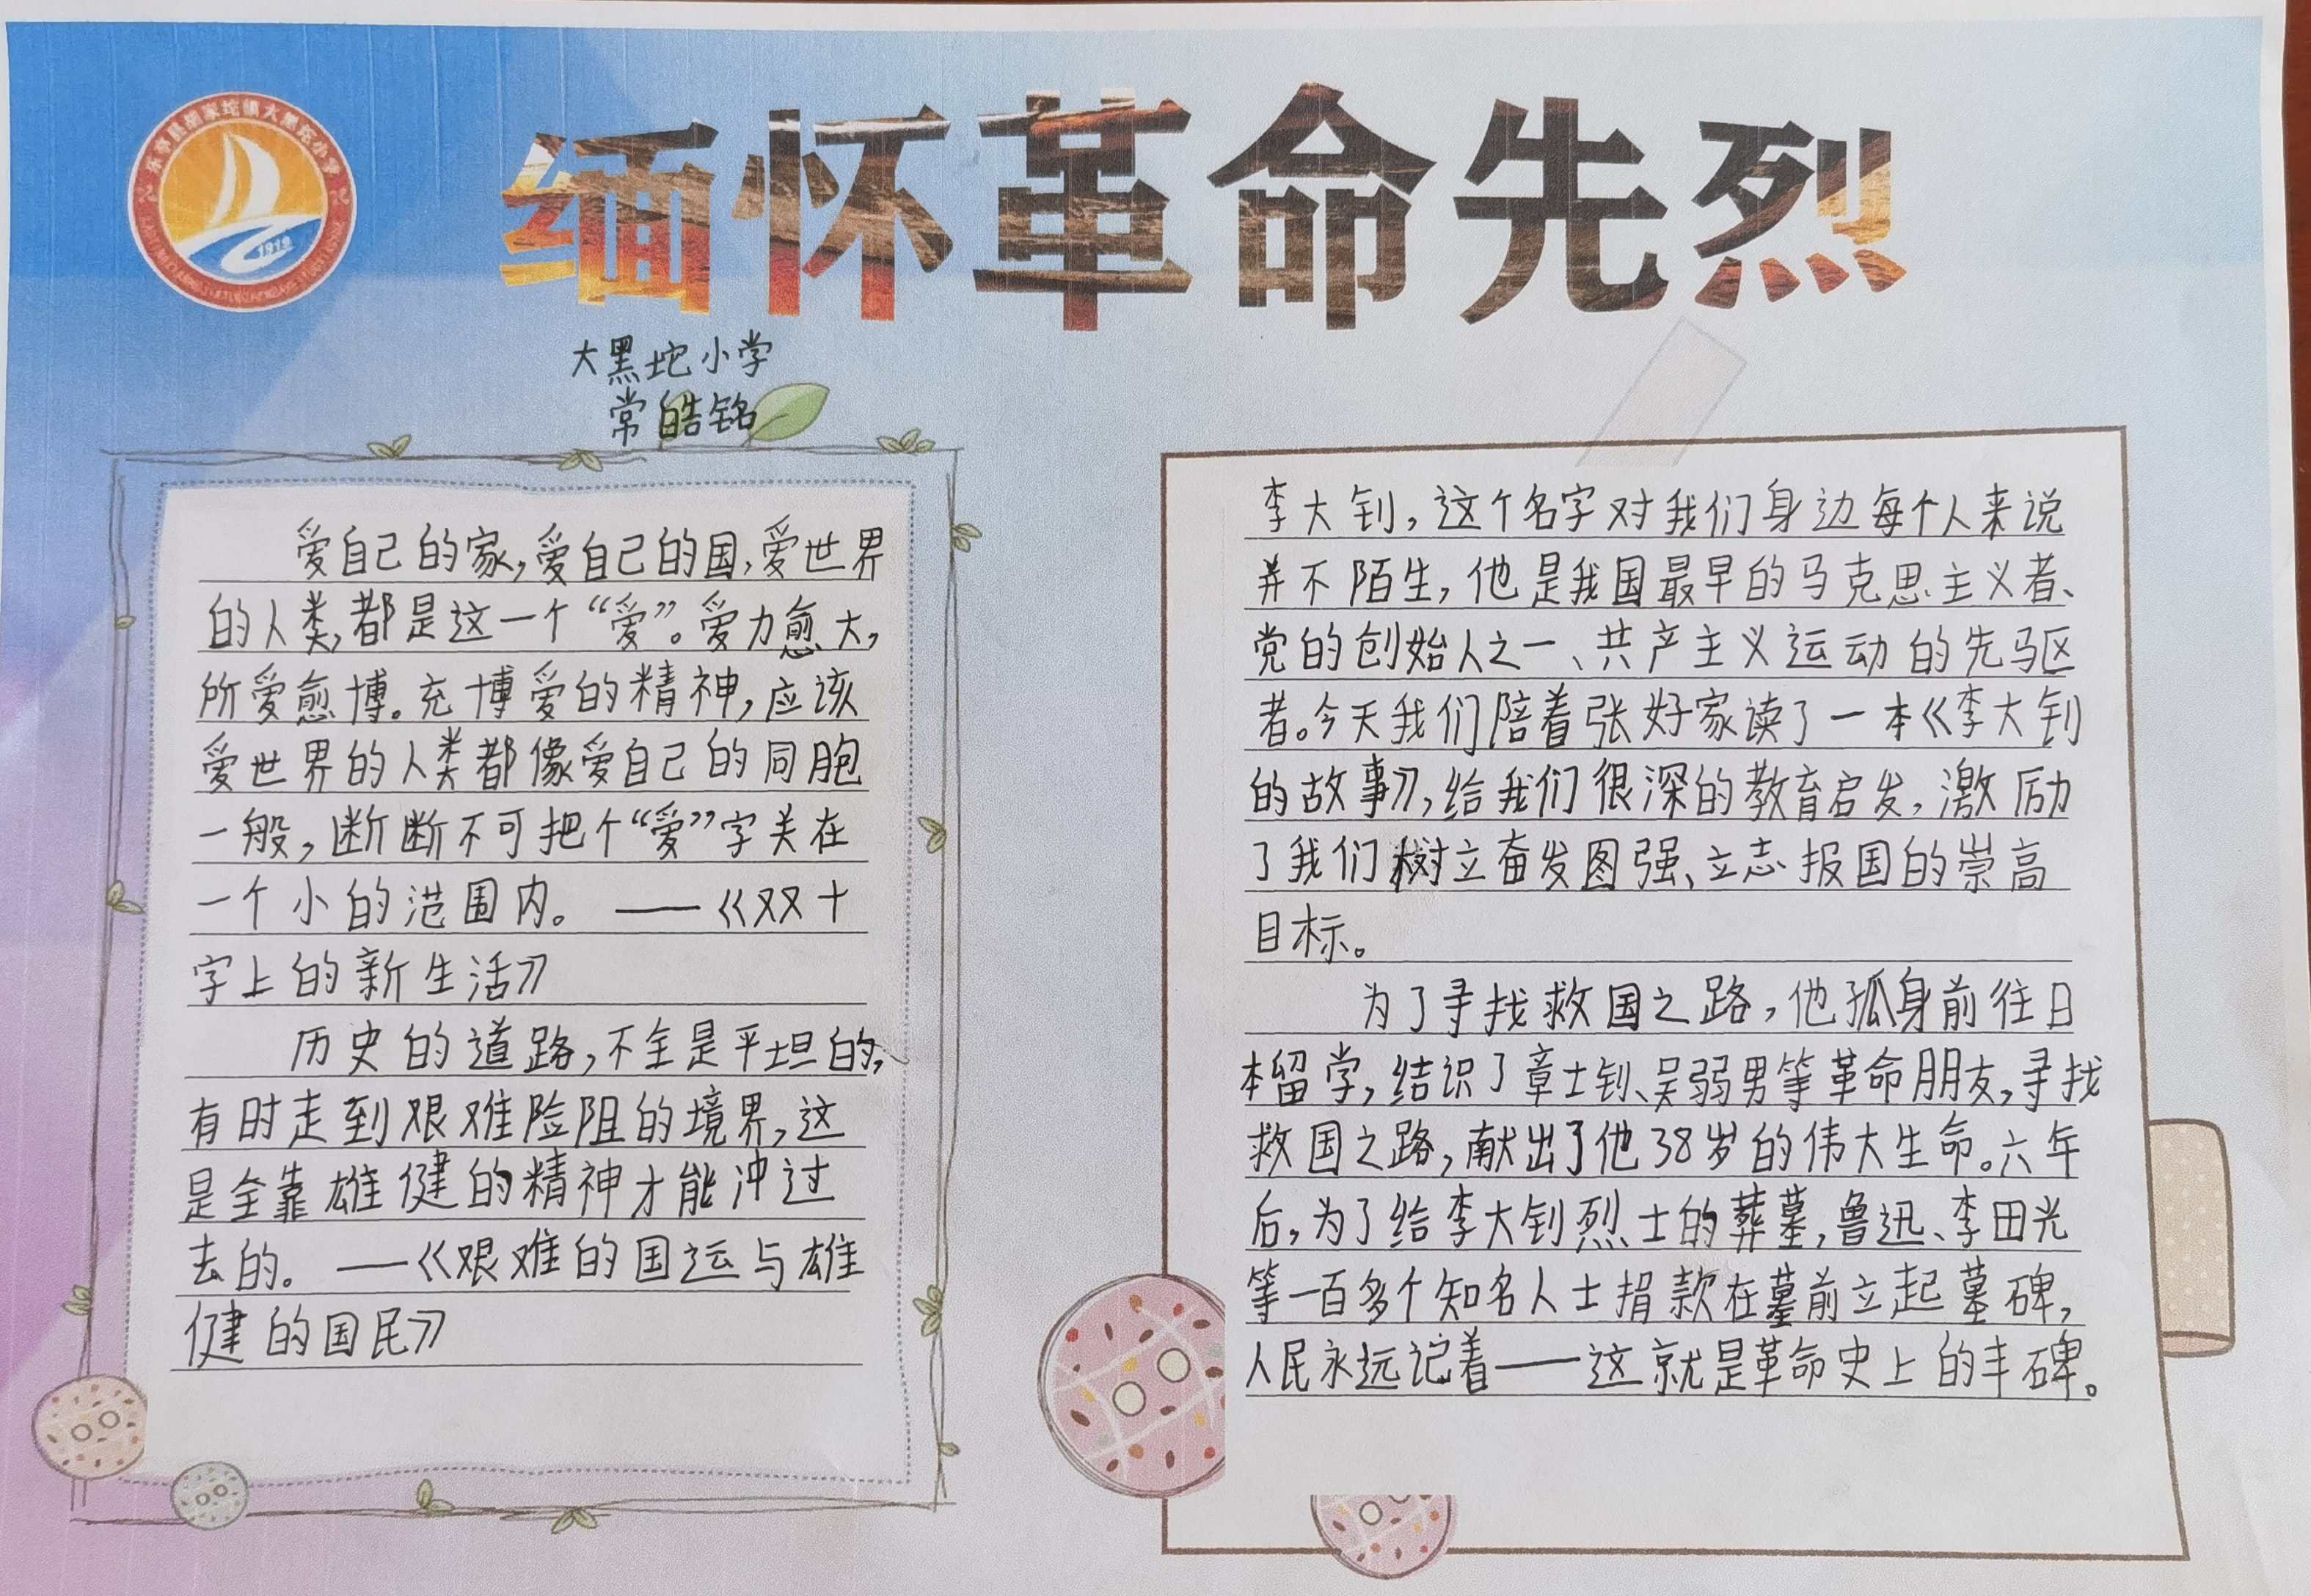 缅怀革命先烈
乐亭县胡家坨镇大黑坨小学
1919
大黑坨小学
常皓铭
爱自己的家,爱自己的国,爱世界
的人类,都是这一个“爱”。爱力愈大,
所爱愈博。充博爱的精神,应该
爱世界的人类都像爱自己的同胞
一般,断断不可把个“爱”字关在
一个小的范围内。——《双十
字上的新生活》
历史的道路,不全是平坦的,
有时走到艰难险阻的境界,这
是全靠雄健的精神才能冲过
去的。——《艰难的国运与雄
健的国民》
李大钊,这个名字对我们身边每个人来说
并不陌生,他是我国最早的马克思主义者、
党的创始人之一、共产主义运动的先驱
者。今天我们陪着张好家读了一本《李大钊
的故事》,给我们很深的教育启发,激励
了我们树立奋发图强、立志报国的崇高
目标。
为了寻找救国之路,他孤身前往日
本留学,结识了章士钊、吴弱男等革命朋友,寻找
救国之路,献出了他38岁的伟大生命。六年
后,为了给李大钊烈士的葬墓,鲁迅、李田光
等一百多个知名人士捐款在墓前立起墓碑,
人民永远记着——这就是革命史上的丰碑。